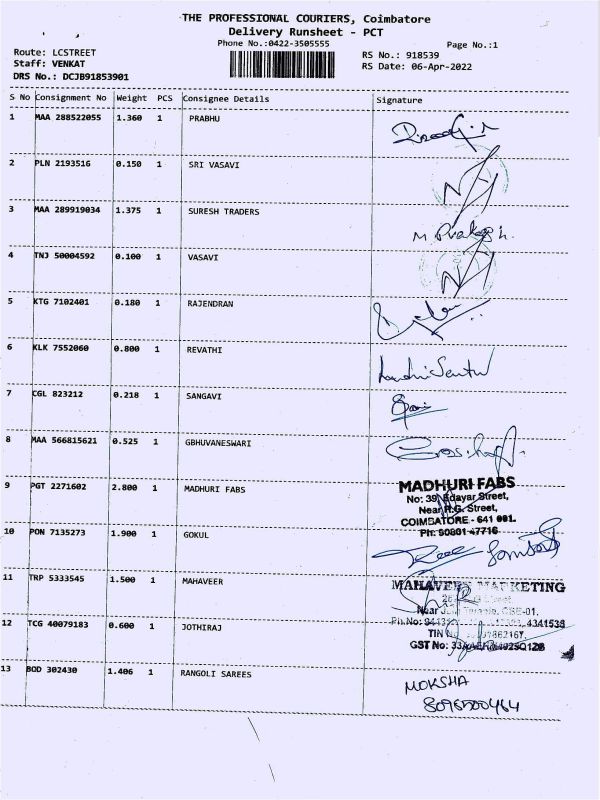 THE PROFESSIONAL COURIERS, Coimbatore
Delivery Runsheet - PCT
Phone No.:0422-3505555
Page No.:1
Route: LCSTREET
Staff: VENKAT
DRS No.: DCJB91853901
RS No.: 918539
RS Date: 06-Apr-2022
S No Consignment No Weight PCS Consignee Details Signature
1 MAA 288522055 1.360 1 PRABHU
2 PLN 2193516 0.150 1 SRI VASAVI
3 MAA 289919034 1.375 1 SURESH TRADERS
M. Prakash.
4 TNJ 50004592 0.100 1 VASAVI
5 KTG 7102401 0.180 1 RAJENDRAN
6 KLK 7552060 0.800 1 REVATHI
7 CGL 823212 0.218 1 SANGAVI
8 MAA 566815621 0.525 1 GBHUVANESWARI
9 PGT 2271602 2.800 1 MADHURI FABS
MADHURI FABS
No: 39, Edayar Street,
Near R.G. Street,
COIMBATORE - 641 001.
Ph: 90801 47716
10 PON 7135273 1.900 1 GOKUL
11 TRP 5333545 1.500 1 MAHAVEER
MAHAVEER MARKETING
Near
CBE-01.
Ph.No:
4341538
TIN
GST No:
12 TCG 40079183 0.600 1 JOTHIRAJ
13 BOD 302430 1.406 1 RANGOLI SAREES
MOKSHA